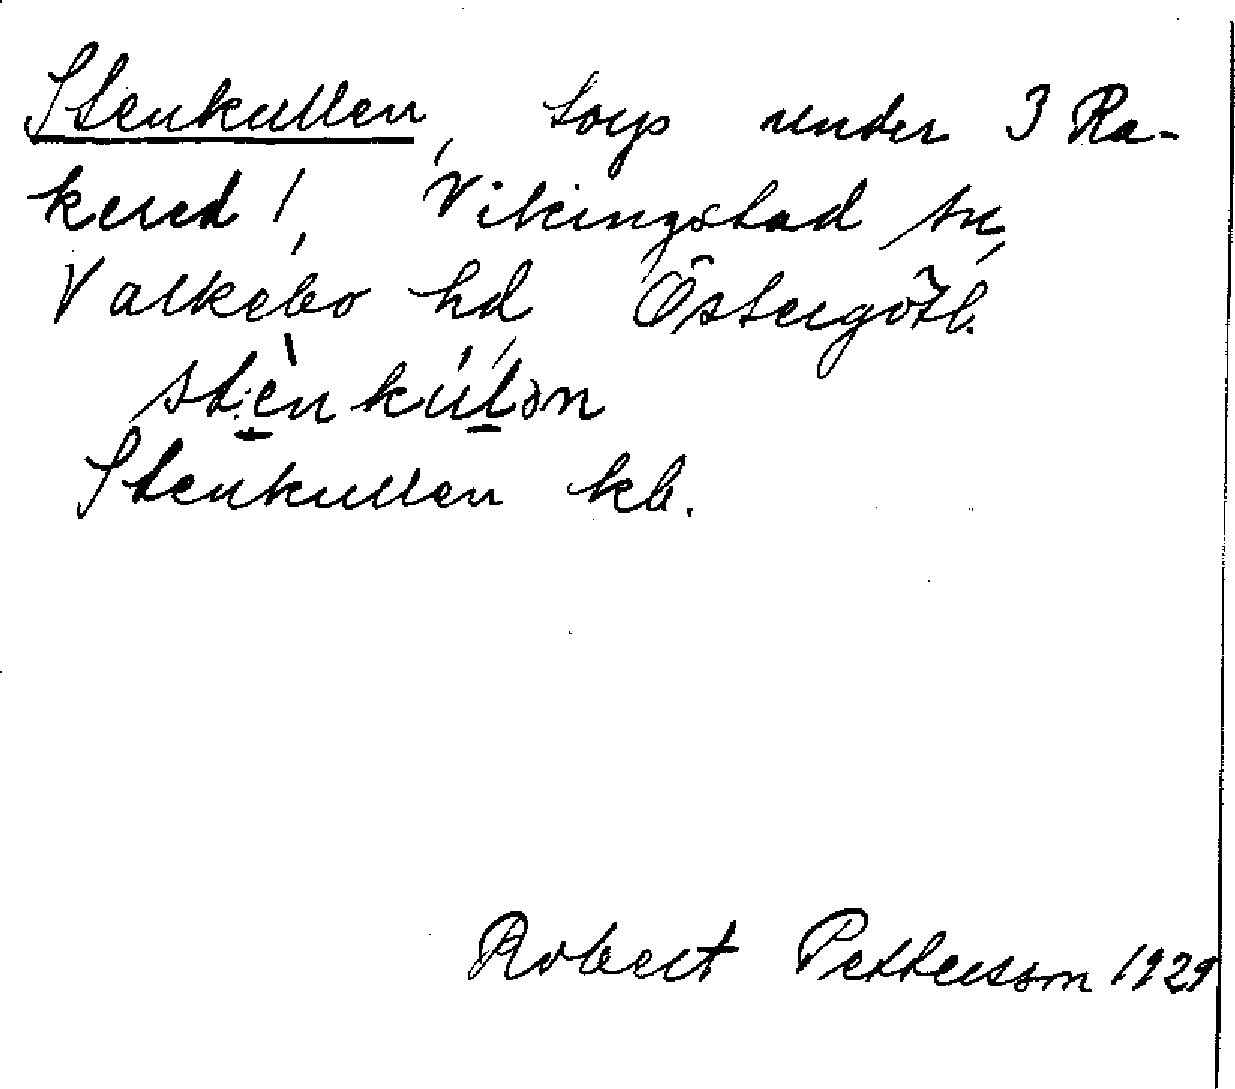 Stenkullen, torp under 3 Ra-
kered 1, Vikingstad sn,
Valkebo hd, Östergötl.
stènkúlən
Stenkullen kb.
Robert Pettersson 1929